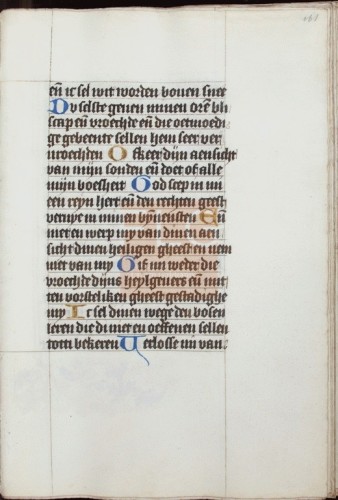 161
en̄ ic sel wit worden bouen snee
Du selste geuen minen orē bli
scap en̄ vroechde en̄ die oetmoedi
ge gebeente sellen hem seer ver
vroechden O keer dijn aensicht
van mijn sonden en̄ doet of alle
mijn boesheit God scep in mi
een reyn hert en̄ den rechten geest
vernye in minen bȳnensten En̄
niet en werp my van dinen aen
sicht dinen heiligen gheest en nem
niet van my Gif mi weder die
vroechde dijns heylgeuers en̄ mit
ten vorsteliken gheest gestadighe
my Ic sel dinen wege den bosen
leren die di niet en oeffenen sellen
totti bekeren Verlosse mi van